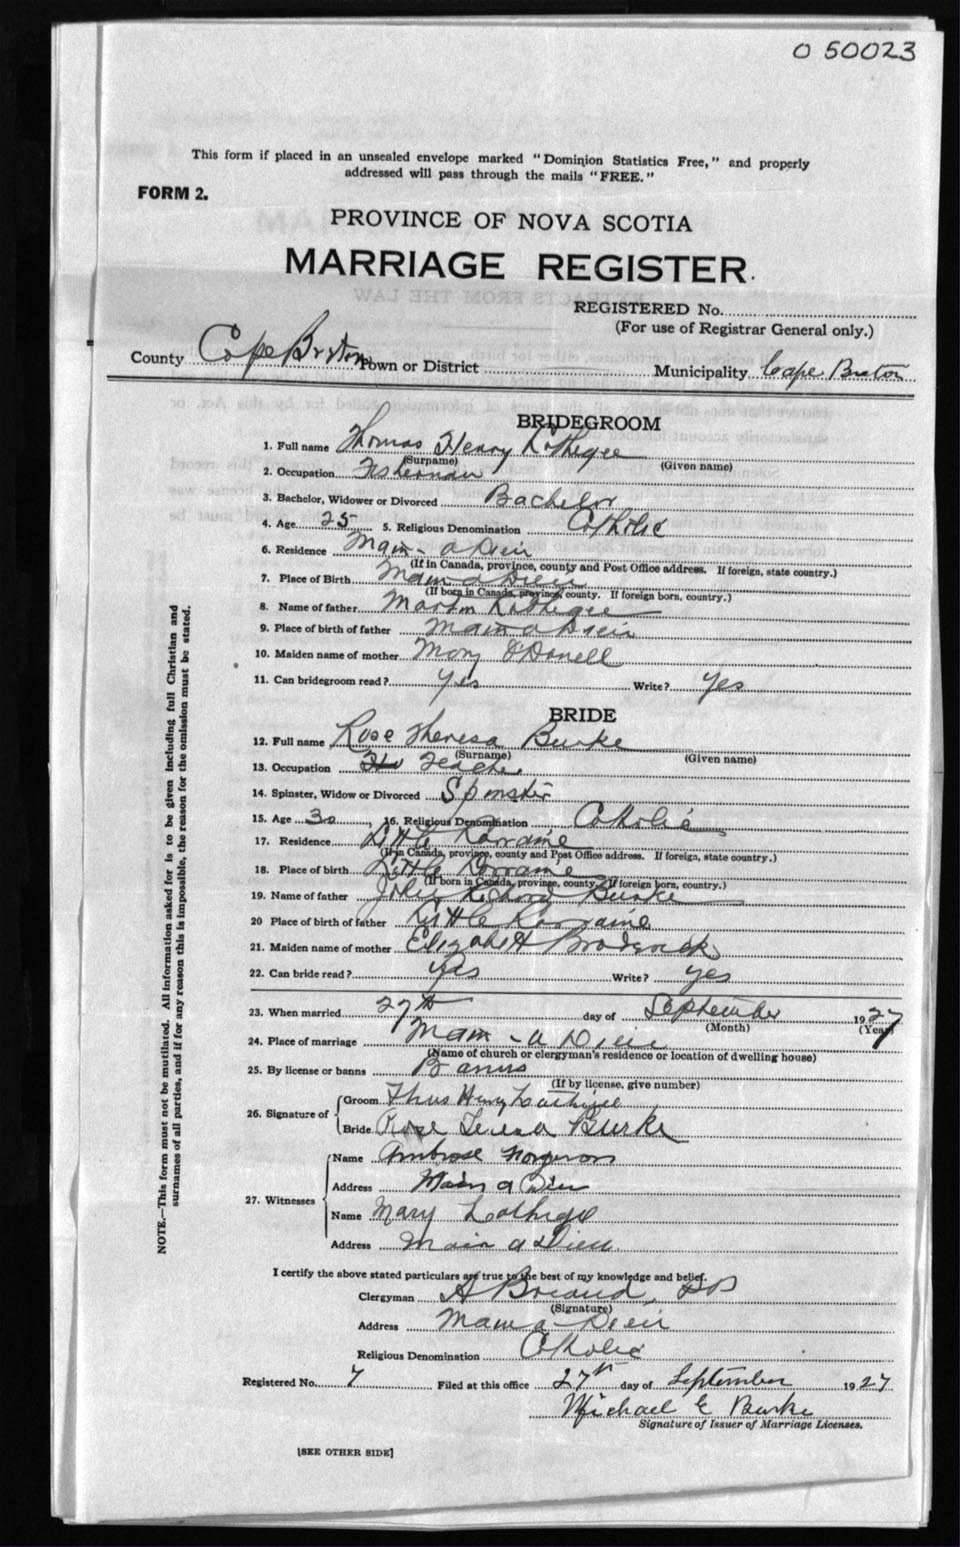 O 50023
This form if placed in an unsealed envelope marked "Dominion Statistics Free," and properly
addressed will pass through the mails "FREE."
FORM 2.
PROVINCE OF NOVA SCOTIA
MARRIAGE REGISTER.
REGISTERED No.
(For use of Registrar General only.)
County Cape Breton Town or District Municipality Cape Breton
BRIDEGROOM
1. Full name Thomas Henry
(Surname) (Given name)
2. Occupation Fisherman
3. Bachelor, Widower or Divorced Bachelor
4. Age 25 5. Religious Denomination Catholic
6. Residence Main-a Dieu
(If in Canada, province, county and Post Office address. If foreign, state country.)
7. Place of Birth Main a Dieu
(If born in Canada, province, county. If foreign born, country.)
8. Name of father Martin
9. Place of birth of father Main a Dieu
10. Maiden name of mother Mary O'Donell
11. Can bridegroom read? yes Write? yes
BRIDE
12. Full name Rose Theresa Burke
(Surname) (Given name)
13. Occupation Teacher
14. Spinster, Widow or Divorced Spinster
15. Age 30, 16. Religious Denomination Catholic
17. Residence Little Lorraine
(If in Canada, province, county and Post Office address. If foreign, state country.)
18. Place of birth Little Lorraine
(If born in Canada, province, county. If foreign born, country.)
19. Name of father Richard Burke
20 Place of birth of father Little Lorraine
21. Maiden name of mother Elizabeth Broderick
22. Can bride read? yes Write? yes
23. When married 27th day of September 1927
(Month) (Year)
24. Place of marriage Main-a Dieu
(Name of church or clergyman's residence or location of dwelling house)
25. By license or banns Banns
(If by license, give number)
26. Signature of
Groom Thos Henry
Bride Rose Teresa Burke
27. Witnesses
Name Ambrose
Address Main a Dieu
Name Mary
Address Main a Dieu.
I certify the above stated particulars are true to the best of my knowledge and belief.
Clergyman A Briand,
(Signature)
Address Main a Dieu
Religious Denomination Catholic
Registered No. 7 Filed at this office 27th day of September 1927
Michael E Burke
Signature of Issuer of Marriage Licenses.
[SEE OTHER SIDE]
NOTE.—This form must not be mutilated. All information asked for is to be given including full Christian and
surnames of all parties, and if for any reason this is impossible, the reason for the omission must be stated.